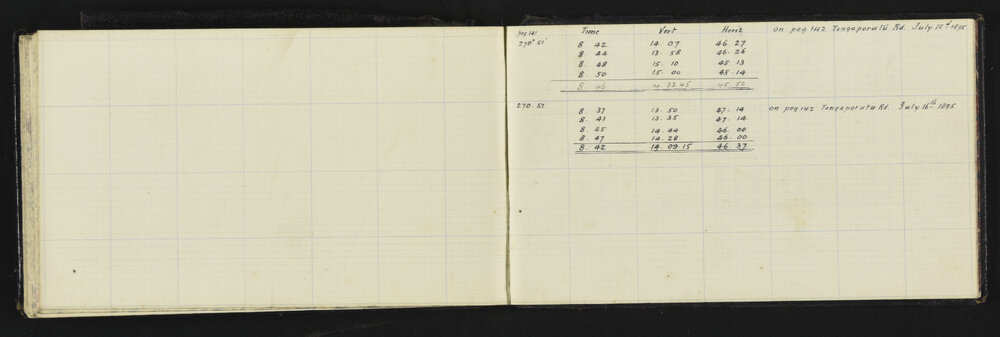 Peg 141 Time Vert Horiz on peg 142 Tongaporutu Rd. July 15th 1895
270° 51' 8. 42 14. 07 46. 27
8. 44 13. 58 46. 26
8. 48 15. 10 45 13
8. 50 15. 00 45. 14
8. 46 14. 33. 45 45. 50
270. 51 8. 37 13. 50 47. 14 on peg 142 Tongaporutu Rd. July 16th 1895
8. 41 13. 35 47. 14
8. 45 14. 44 46. 00
8. 47 14. 28 46. 00
8. 42 14. 09 15 46. 37